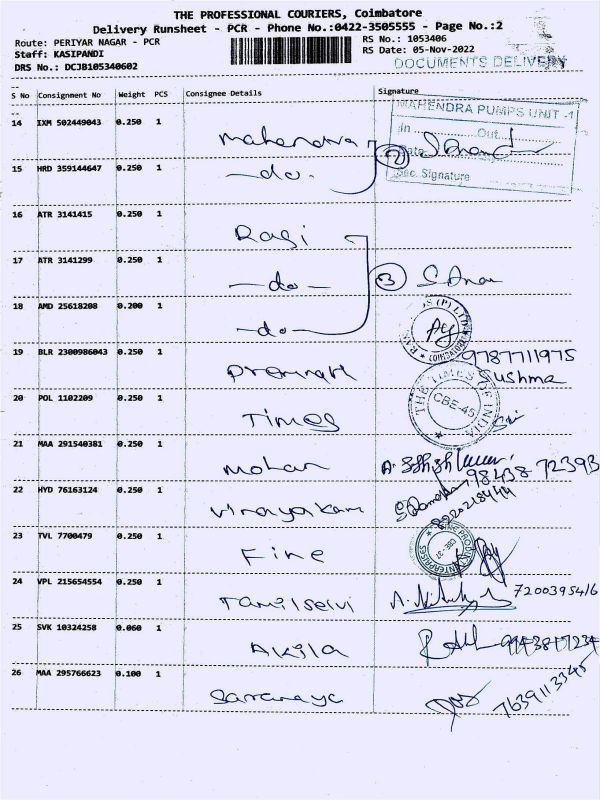 THE PROFESSIONAL COURIERS, Coimbatore
Delivery Runsheet - PCR - Phone No.:0422-3505555 - Page No.:2
Route: PERIYAR NAGAR - PCR
RS No.: 1053406
Staff: KASIPANDI
RS Date: 05-Nov-2022
DRS No.: DCJB105340602
DOCUMENTS DELIVERY
S No Consignment No Weight PCS Consignee Details Signature
MAHENDRA PUMPS UNIT -1
In Out
Date
Sec. Signature
14 IXM 502449043 0.250 1 Mahendra
2 S Anand
15 HRD 359144647 0.250 1 -do-
16 ATR 3141415 0.250 1 Ragi
17 ATR 3141299 0.250 1 -do-
3
18 AMD 25618208 0.200 1 -do-
19 BLR 2300986043 0.250 1 9787711975
Sushma
20 POL 1102209 0.250 1 Times
THE TIMES OF INDIA
CBE-45
21 MAA 291540381 0.250 1 Mohan
98438 72393
22 HYD 76163124 0.250 1 Vinayakam
8220218444
23 TVL 7700479 0.250 1 Fine
24 VPL 215654554 0.250 1 Tamilselvi 7200395416
25 SVK 10324258 0.060 1 Akila
26 MAA 295766623 0.100 1 Saranaya 7639113345